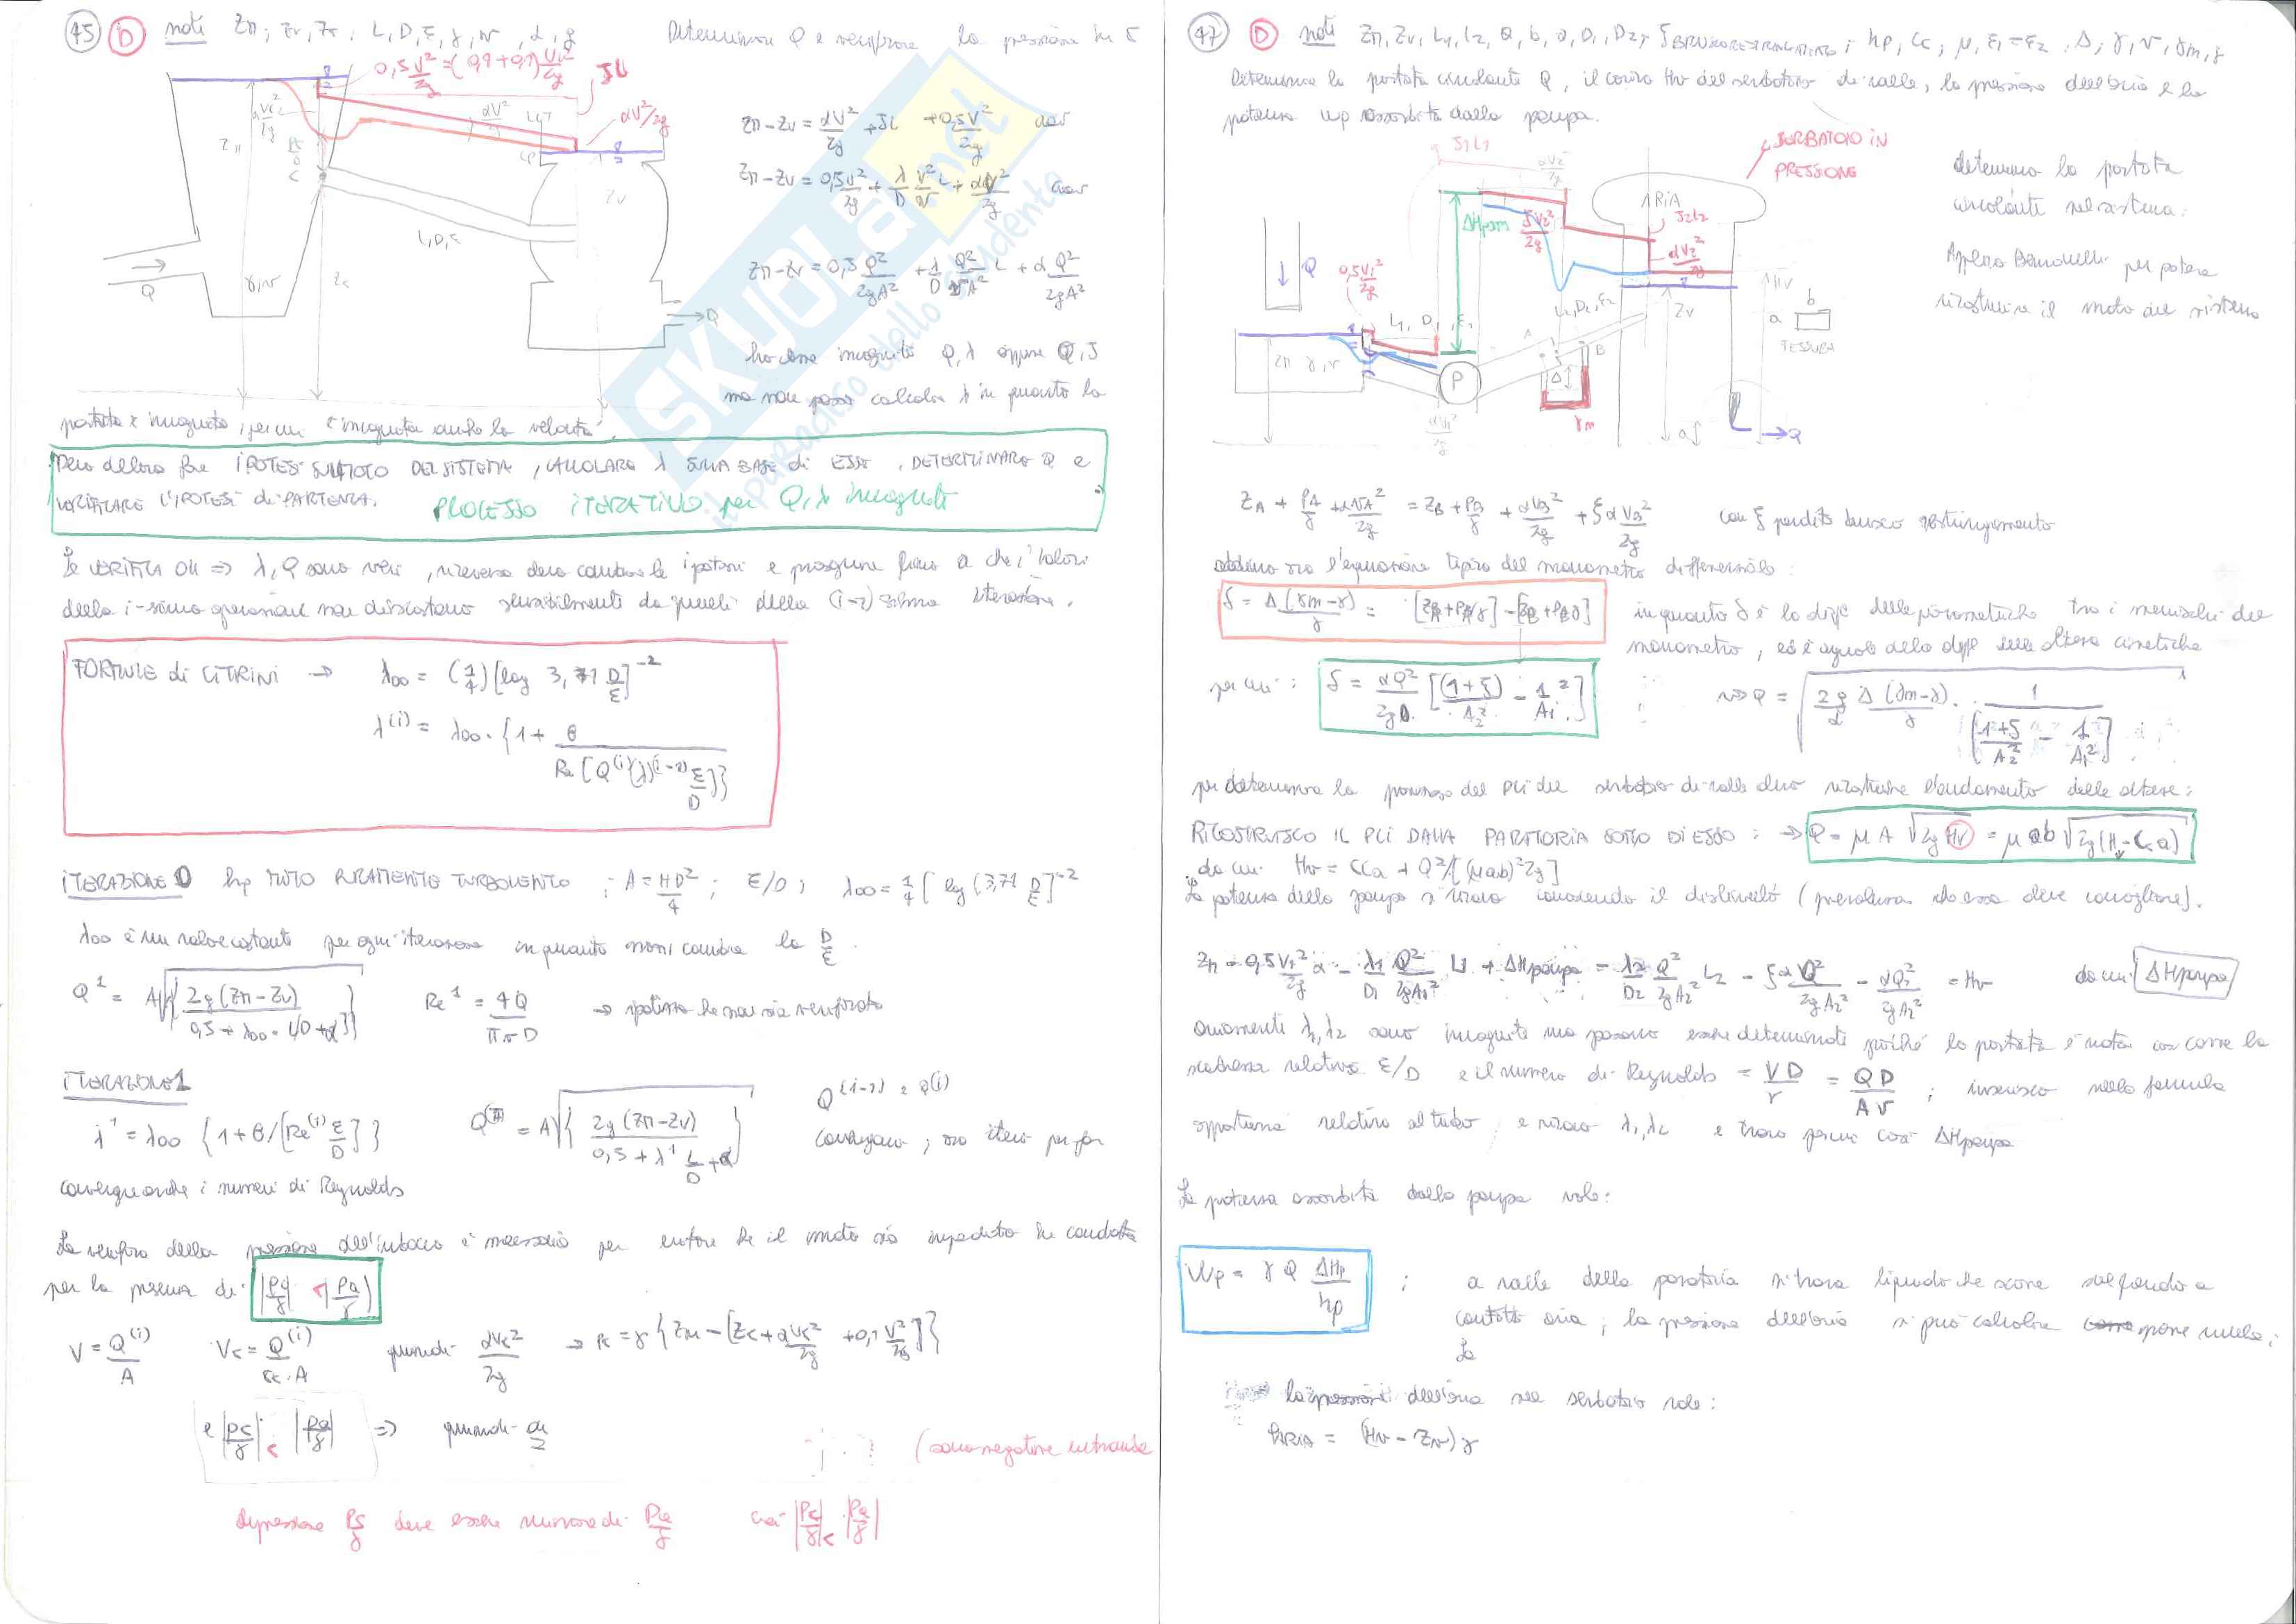 45 D note Zm, Zv, Zc, L, D, ε, γ, ν, α, g Determinare Q e verificare la pressione in C
0,5 V²/2g = (0,4+0,1) V²/2g
JL
αVc²/2g
αV²/2g
αV²/2g
Zm
Zv
C
L, D, ε
γ, ν
Zc
Q
Q
Zm - Zv = αV²/2g + JL + 0,5V²/2g cioè
Zm - Zv = 0,5V²/2g + λ/D V²/2g L + αV²/2g cioè
Zm - Zv = 0,5 Q²/2gA² + λ/D Q²/2gA² L + α Q²/2gA²
ho come incognite Q, λ oppure Q, J
ma non posso calcolare λ in quanto la
portata è incognita, per cui è incognita anche la velocità.
Però devo fare IPOTESI SUL MOTO DEL SISTEMA, CALCOLARE λ SULLA BASE di ESSO, DETERMINARE Q e
VERIFICARE L'IPOTESI di PARTENZA. PROCESSO ITERATIVO per Q, λ incognite
Se VERIFICA OK => λ, Q sono veri, viceversa devo cambiare le ipotesi e proseguire fino a che i valori
della i-esima operazione non discostano sensibilmente da quelli della (i-1) esima iterazione.
FORMULE di CITRINI → λ∞ = (1/4) [log 3,71 D/ε]⁻²
λ⁽ⁱ⁾ = λ∞ · {1 + 8 / Re [Q⁽ⁱ⁾(λ)⁽ⁱ⁻¹⁾ ε/D]}
ITERAZIONE 0 hp MOTO PURAMENTE TURBOLENTO ; A = ΠD²/4 ; ε/D ; λ∞ = 1/4 [log (3,71 D/ε]⁻²
λ∞ è un valore costante per ogni iterazione in quanto non cambia la D/ε.
Q¹ = A√{2g(Zm-Zv) / 0,5+λ∞·L/D+α} Re¹ = 4Q/πνD → ipotesi che non sia verificata
ITERAZIONE 1
λ¹ = λ∞ {1+8/[Re⁽ⁱ⁾ ε/D]} Q = A√{2g(Zm-Zv) / 0,5+λ¹ L/D+α} Q⁽ⁱ⁻¹⁾ e Q⁽ⁱ⁾
convergono ; ora itero per far
convergere anche i numeri di Reynolds
La verifica della pressione dell'imbocco è necessaria per evitare che il moto sia impedito in condotta
per la presenza di |Pc/γ| < |Pa/γ|
V = Q⁽ⁱ⁾/A Vc = Q⁽ⁱ⁾/cc·A quindi αVc²/2g → Pc = γ {Zm - [Zc + αVc²/2g + 0,1 V²/2g]}
e |Pc/γ| < |Pa/γ| => quindi ok
(sono negative entrambe
depressione Pc/γ deve essere minore di Pa/γ cioè |Pc/γ| < |Pa/γ|
47 D note Zm, Zv, L1, L2, Q, b, a, D1, D2, ξ BRUSCO RESTRINGIMENTO ; hp, Cc ; μ, ε1=ε2, Δ ; γ, ν, γm, g
Determinare la portata circolante Q, il carico Hv del serbatoio di valle, la pressione dell'aria e la
potenza Wp assorbita dalla pompa.
J1L1
αV2²/2g
SERBATOIO IN
PRESSIONE
ARIA
ΔHpom
ξV2²/2g
J2L2
αV2²/2g
0,5V1²/2g
L1, D1, ε1
L2, D2, ε2
Zv
Hv
b
a
FESSURA
Q
Zm γ, ν
P
A
B
Δ
αV1²/2g
γm
a
Q
determino la portata
circolante nel sistema:
Applico Bernoulli per potere
ricostruire il moto del sistema
ZA + PA/γ + αVA²/2g = ZB + PB/γ + αVB²/2g + ξαVB²/2g con ξ perdita brusco restringimento
abbiamo ora l'equazione tipica del manometro differenziale:
δ = Δ(γm-γ)/γ = [ZA+PA/γ] - [ZB+PB/γ] in quanto δ è la diff delle piezometriche tra i menischi del
manometro, ed è uguale alla diff delle altezze cinetiche
per cui: δ = αQ²/2g [(1+ξ)/A2² - 1/A1²] => Q = √2g/α Δ(γm-γ)/γ · 1/[1+ξ/A2² - 1/A1²]
per determinare la posizione del PLI del serbatoio di valle devo ricostruire l'andamento delle altezze:
RICOSTRUISCO IL PLI DALLA PARATOIA SOTTO DI ESSO : → Q = μ A √2g Hv = μ ab √2g(Hv-Cca)
da cui Hv = Cca + Q²/[(μab)²2g]
La potenza della pompa si trova conoscendo il dislivello (prevalenza che essa deve convogliare).
Zm - 0,5V1²/2g α - λ1/D1 Q²/2gA1² L1 + ΔHpompa = λ2/D2 Q²/2gA2² L2 - ξαQ²/2gA2² - αQ²/2gA2² = Hv da cui ΔHpompa
ovviamente λ1, λ2 sono incognite ma possono essere determinate poiché la portata è nota così come la
scabrezza relativa ε/D e il numero di Reynolds = VD/ν = QD/Aν ; inserisco nella formula
opportuna relativa al tubo e ricavo λ1, λ2 e trovo per cui così ΔHpompa
La potenza assorbita dalla pompa vale:
Wp = γ Q ΔHp/hp ; a valle della paratoia si trova liquido che scorre sul fondo a
contatto aria ; la pressione dell'aria si può calcolare come
La
la pressione dell'aria nel serbatoio vale:
PARIA = (Hv - Zv)γ
SKUOLA.net
il paradiso dello studente